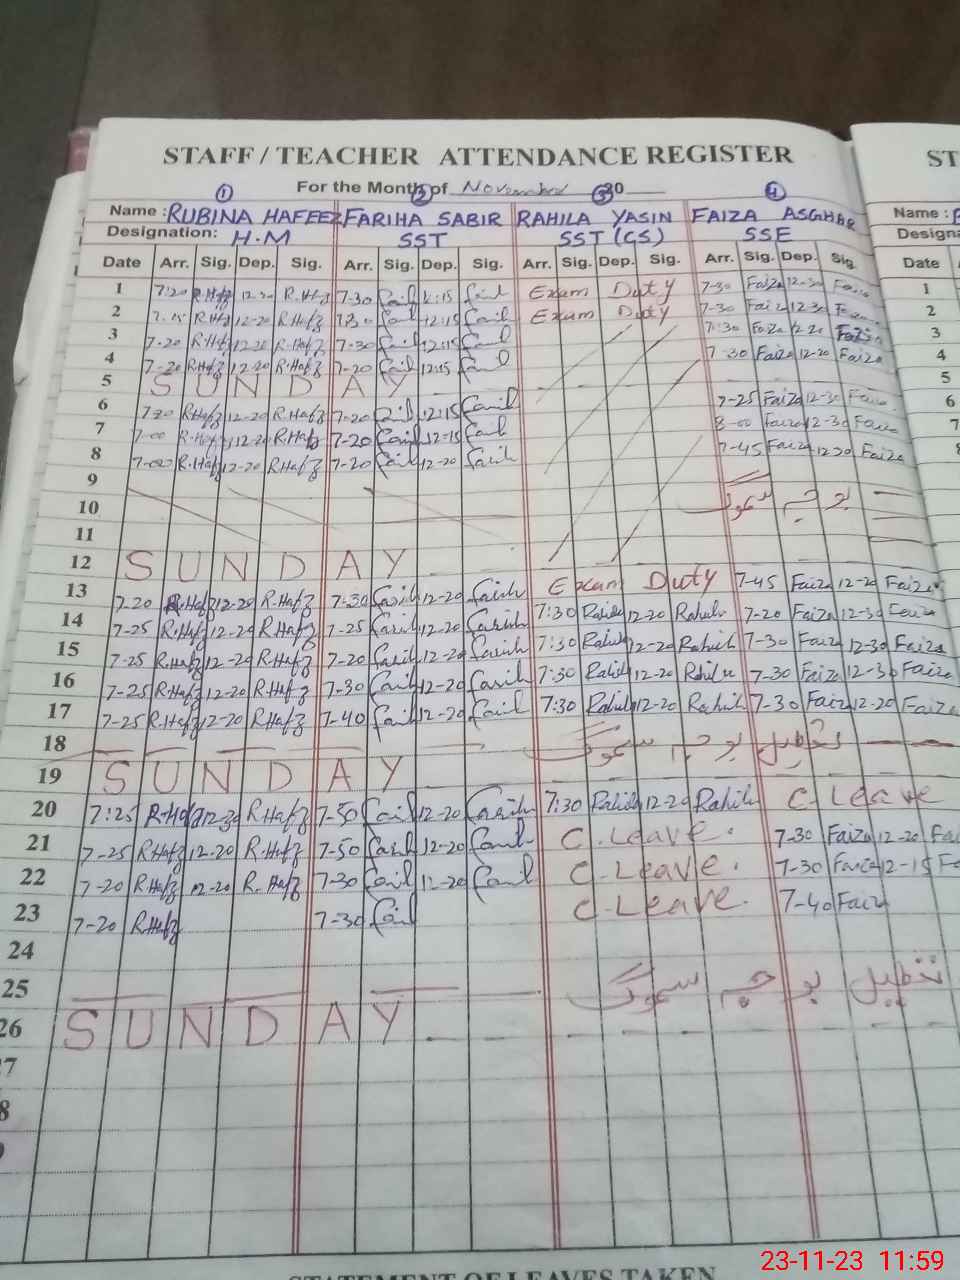 STAFF / TEACHER ATTENDANCE REGISTER ST
For the Month of November 20
① ② ③ ④
Name : RUBINA HAFEEZ FARIHA SABIR RAHILA YASIN FAIZA ASGHAR Name :
Designation: H.M SST SST (CS) SSE Designa
Date Arr. Sig. Dep. Sig. Arr. Sig. Dep. Sig. Arr. Sig. Dep. Sig. Arr. Sig. Dep. Sig. Date
1 7:20 R.Hafz R.Hafz 7-30 12:15 Exam Duty 7-30 Faiza 12-30 Faiza 1
2 R.Hafz 12-20 R.Hafz 12:15 Exam Duty 7-30 Faiza 12-30 2
3 7-20 R.Hafz 12-20 R.Hafz 7-30 12:15 7:30 Faiza Faiza 3
4 7-20 R.Hafz 12-20 R.Hafz 7-20 12:15 7-30 Faiza 12-20 Faiza 4
5 SUNDAY 5
6 R.Hafz 12-20 R.Hafz 7-20 12:15 7-25 Faiza 12-30 Faiza 6
7 7-00 R.Hafz 12-20 R.Hafz 7-20 12-15 8-00 Faiza 12-30 Faiza 7
8 R.Hafz 12-20 R.Hafz 7-20 12-20 7-45 Faiza 12-30 Faiza 8
9
10 بوجہ سموگ
11
12 SUNDAY
13 7-20 R.Hafz 12-20 R.Hafz 7-30 12-20 Exam Duty 7-45 Faiza 12-20 Faiza
14 7-25 R.Hafz 12-20 R.Hafz 7-25 12-20 7:30 Rahila 12-20 Rahila 7-20 Faiza 12-30 Faiza
15 7-25 R.Hafz 12-20 R.Hafz 7-20 12-20 7:30 Rahila 12-20 Rahila 7-30 Faiza 12-30 Faiza
16 7-25 R.Hafz 12-20 R.Hafz 7-30 12-20 7:30 Rahila 12-20 Rahila 7-30 Faiza 12-30 Faiza
17 7-25 R.Hafz 12-20 R.Hafz 7-40 12-20 7:30 Rahila 12-20 Rahila 7-30 Faiza 12-20 Faiza
18 تعطیل بوجہ سموگ
19 SUNDAY
20 7:25 R.Hafz R.Hafz 7-50 12-20 7:30 Rahila 12-20 Rahila C-Leave
21 7-25 R.Hafz 12-20 R.Hafz 7-50 12-20 C.Leave. 7-30 Faiza 12-20 Fa
22 7-20 R.Hafz 12-20 R.Hafz 7-30 12-20 C-Leave. 7-30 Faiza 12-15 F
23 7-20 R.Hafz 7-30 C-Leave. 7-40 Faiza
24
25 تعطیل بوجہ سموگ
26 SUNDAY
7
8
9
STATEMENT OF LEAVES TAKEN
23-11-23 11:59